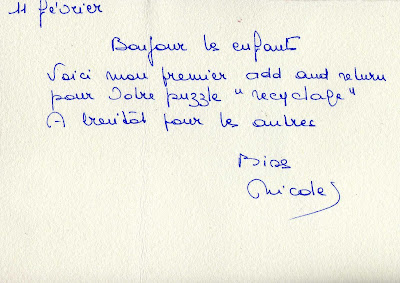 11 février
Bonjour les enfants
Voici mon premier add and return
pour votre puzzle "recyclage"
A bientôt pour les autres
Bises
Nicole